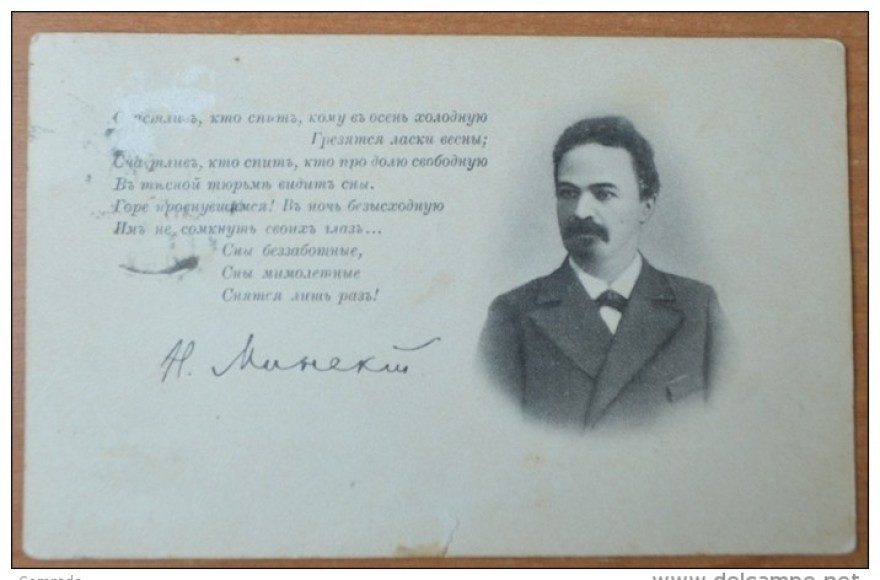 Счастливъ, кто спитъ, кому въ осень холодную
Грезятся ласки весны;
Счастливъ, кто спитъ, кто про долю свободную
Въ тѣсной тюрьмѣ видитъ сны.
Горе проснувшимся! Въ ночь безысходную
Имъ не сомкнуть своихъ глазъ...
Сны беззаботные,
Сны мимолетные
Снятся лишь разъ!
Н. Минскій
www.delcampe.net